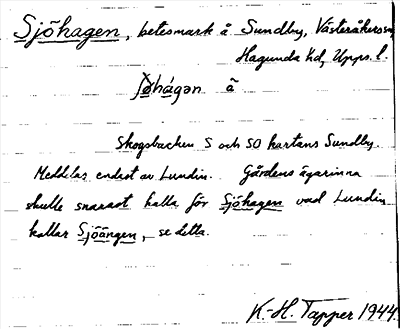 Sjöhagen, betesmark å Sundby, Västeråkers sn,
Hagunda hd, Upps. l.
ʃøhágan ã
Skogsbacken S och SO kartans Sundby.
Meddelas endast av Lundin. Gårdens ägarinna
skulle snarast kalla för Sjöhagen vad Lundin
kallar Sjöängen, se detta.
K.-H. Tapper 1944.